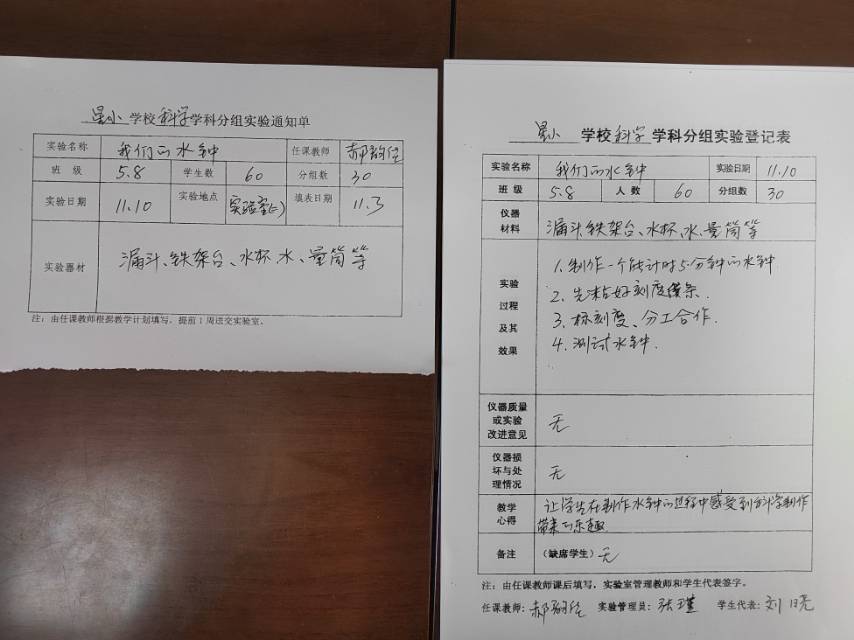 星小 学校 科学 学科分组实验通知单
实验名称 我们的水钟 任课教师 郝韵佳
班 级 5.8 学生数 60 分组数 30
实验日期 11.10 实验地点 实验室(二) 填表日期 11.3
实验器材 漏斗、铁架台、水杯、水、量筒等
注：由任课教师根据教学计划填写，提前1周送交实验室。
星小 学校 科学 学科分组实验登记表
实验名称 我们的水钟 实验日期 11.10
班 级 5.8 人 数 60 分组数 30
仪器
材料
漏斗、铁架台、水杯、水、量筒等
实验
过程
及其
效果
1. 制作一个能计时5分钟的水钟
2. 先粘好刻度条.
3. 标刻度、分工合作.
4. 测试水钟.
仪器质量
或实验
改进意见
无
仪器损
坏与处
理情况
无
教学
心得
让学生在制作水钟的过程中感受到科学制作
带来的乐趣
备注 (缺席学生) 无
注：由任课教师课后填写，实验室管理教师和学生代表签字。
任课教师: 郝 实验管理员: 张瑾 学生代表: 刘晓